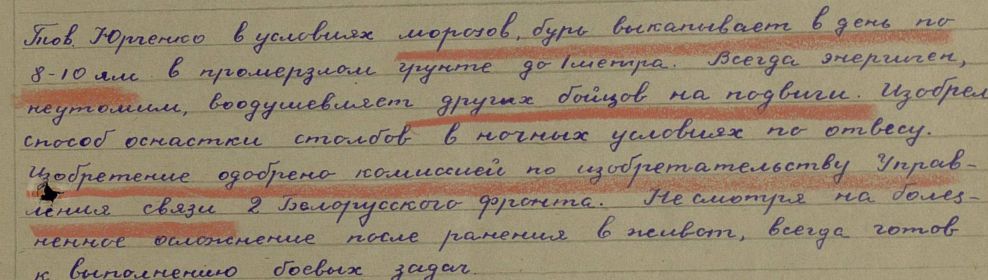 Тов. Юрченко в условиях морозов, бурь выкапывает в день по
8-10 ям в промерзлом грунте до 1 метра. Всегда энергичен,
неутомим, воодушевляет других бойцов на подвиги. Изобрел
способ оснастки столбов в ночных условиях по отвесу.
Изобретение одобрено комиссией по изобретательству Управ-
ления связи 2 Белорусского фронта. Несмотря на болез-
ненное осложнение после ранения в живот, всегда готов
к выполнению боевых задач.